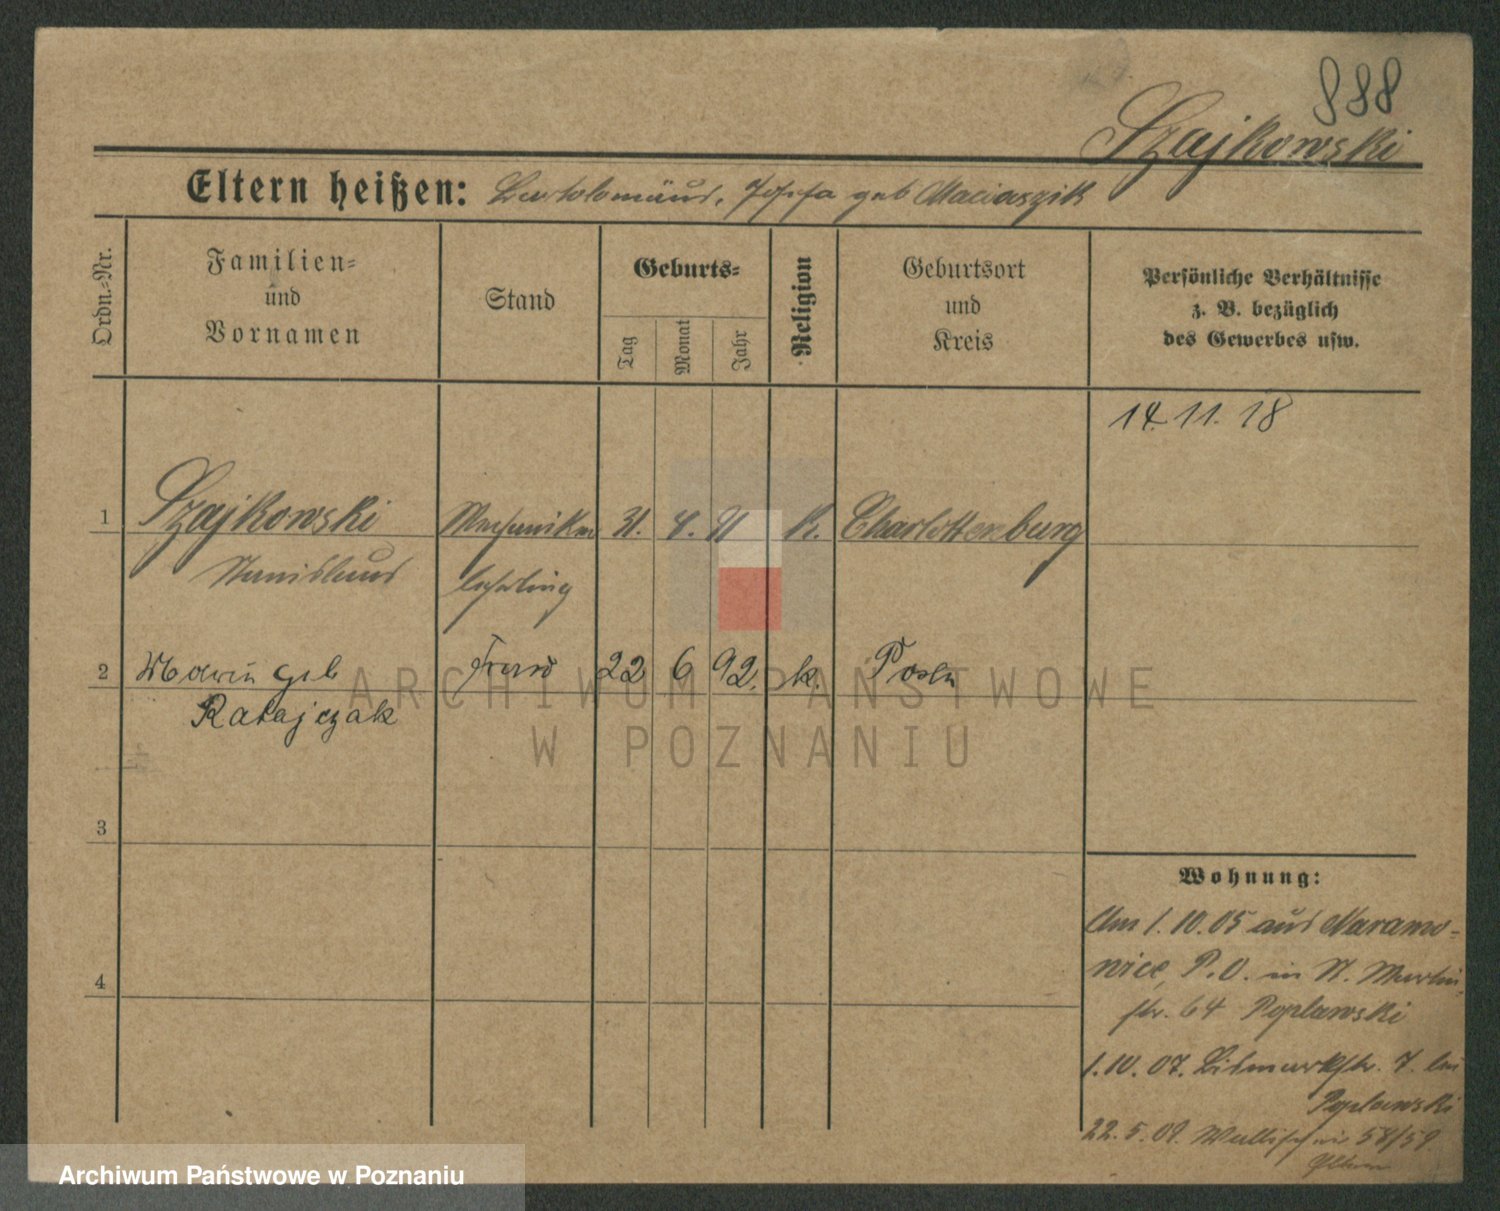 888
Szajkowski
Eltern heißen: Bartolomäus, Josefa geb Maciaszik
Ordn.-Nr.
Familien-
und
Vornamen
Stand
Geburts-
Tag
Monat
Jahr
Religion
Geburtsort
und
Kreis
Persönliche Verhältnisse
z. B. bezüglich
des Gewerbes usw.
14. 11. 18
1 Szajkowski Mechaniker 31. 8. 91 K. Charlottenburg
Stanislaus lehrling
2 geb Frau 22 6 92. k. Posen
Ratajczak
3
4
Wohnung:
Am 1. 10. 05 aus Naramo-
wice, P. O. in St. Martin
str. 64 Poplawski
1. 10. 07. Bismarkstr. 7. bei
Poplawski
22. 5. 09. Wallischei 58/59.
Eltern
ARCHIWUM PAŃSTWOWE
W POZNANIU
Archiwum Państwowe w Poznaniu